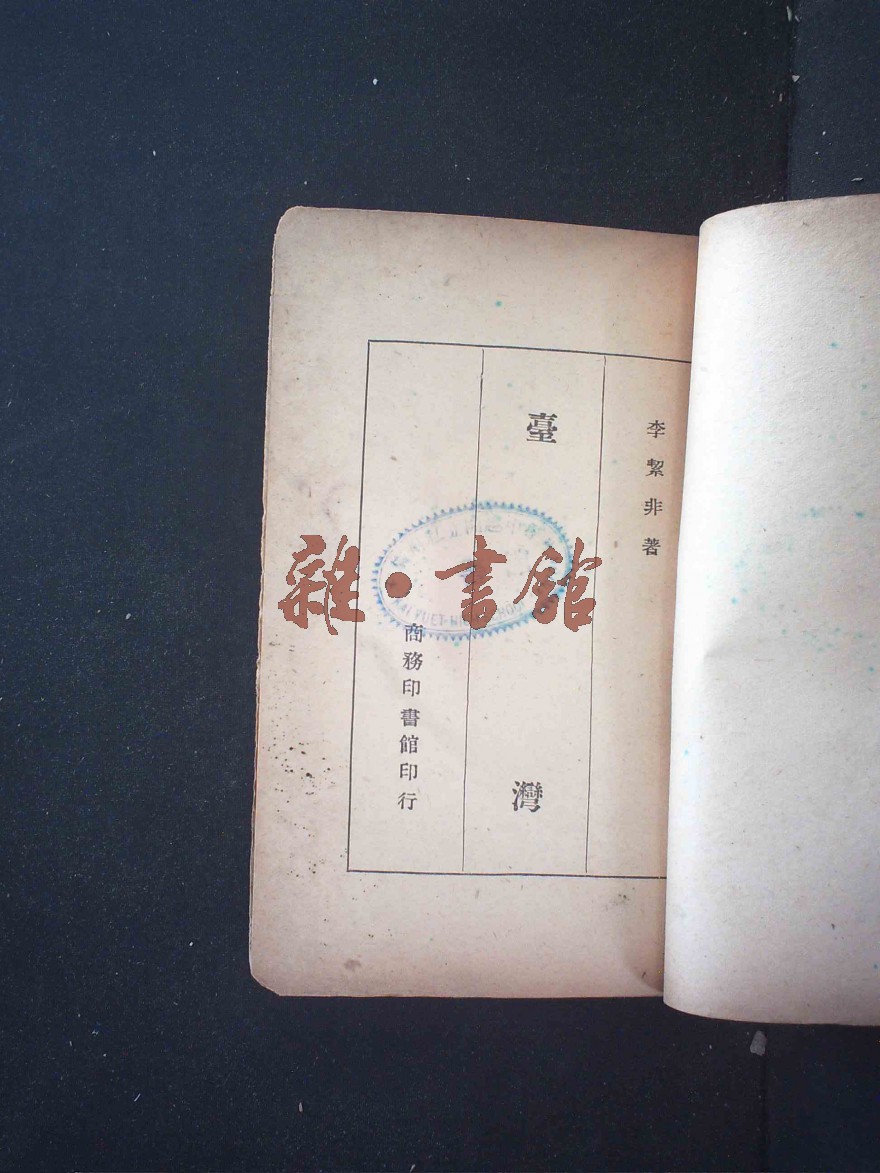 李絜非著
臺灣
商務印書館印行
雜·書館